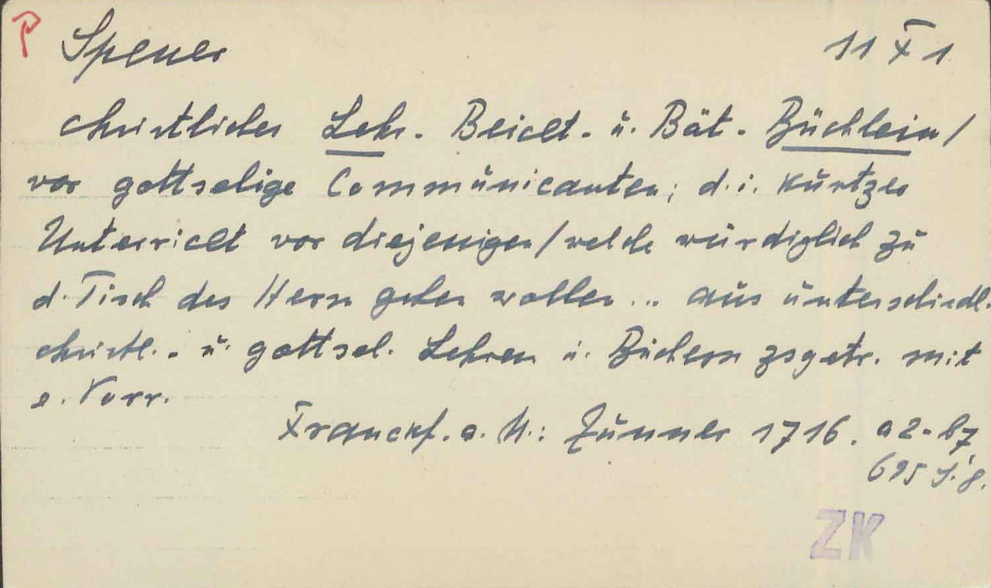 P Spener 11 X 1
christliches Lehr- Beicht- u. Bät- Büchlein/
vor gottselige Communicanten; d.i. kurtzer
Unterricht vor diejenigen/welche würdiglich zu
d. Tisch des Herrn gehen wollen ... aus unterschiedl.
christl.- u. gottsel. Lehren u. Büchern zsgetr. mit
e. Vorr.
Franckf. a. M.: Zunner 1716. a2-b7
695 S. 8.
ZK